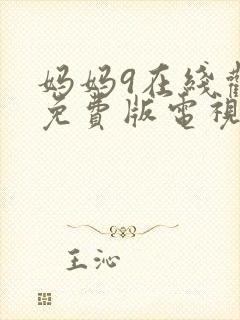 妈妈9在线觀
免費版電視
王沁